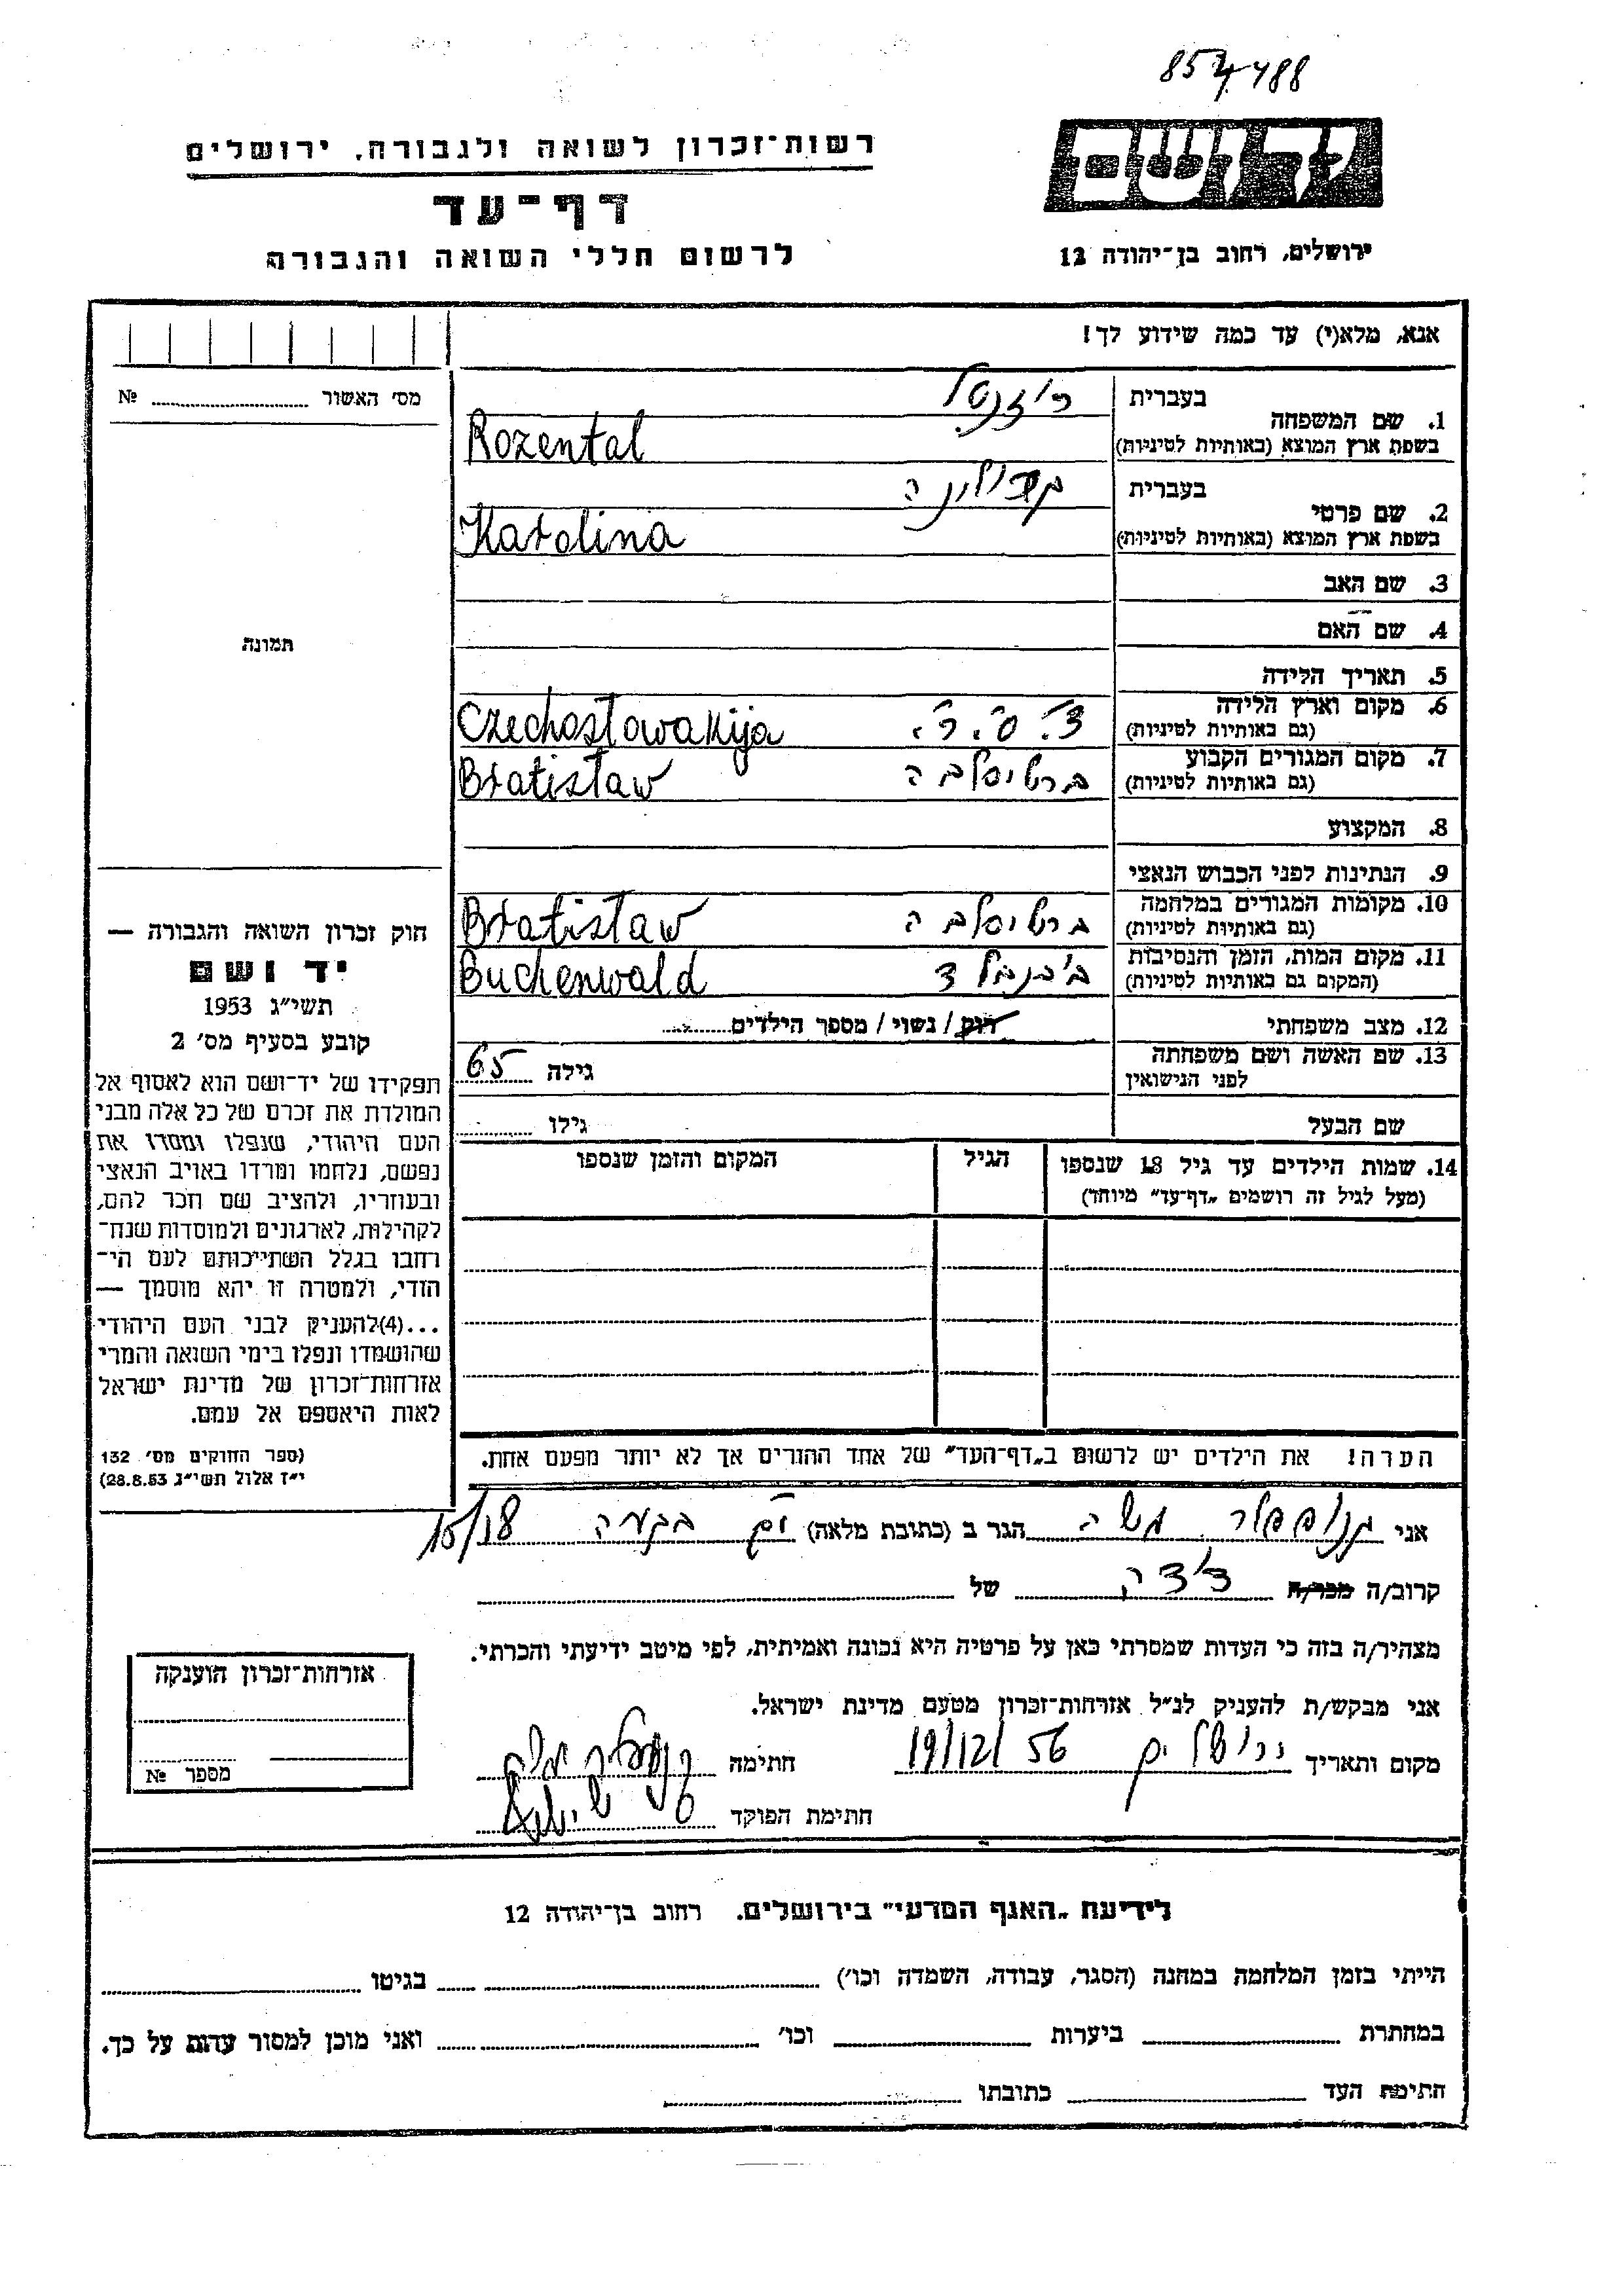 854488
רשות־זכרון לשואה ולגבורה, ירושלים
דף־עד
לרשום חללי השואה והגבורה
יד ושם
ירושלים, רחוב בן־יהודה 12
אנא, מלא(י) עד כמה שידוע לך!
מס׳ האשור № 
1. שם המשפחה
בעברית רוזנטל
בשפת ארץ המוצא (באותיות לטיניות) Rozental
2. שם פרטי
בעברית קרולינה
בשפת ארץ המוצא (באותיות לטיניות) Karolina
3. שם האב
4. שם האם
5. תאריך הלידה
6. מקום וארץ הלידה
(גם באותיות לטיניות) צ׳. ס. ר. Czechosłowakija
7. מקום המגורים הקבוע
(גם באותיות לטיניות) ברטיסלבה Bratisław
8. המקצוע
9. הנתינות לפני הכבוש הנאצי
10. מקומות המגורים במלחמה
(גם באותיות לטיניות) ברטיסלבה Bratisław
11. מקום המות, הזמן והנסיבות
(המקום גם באותיות לטיניות) בוכנבלד Buchenwald
12. מצב משפחתי רווק / נשוי / מספר הילדים
13. שם האשה ושם משפחתה
לפני הנישואין גילה 65
שם הבעל גילו
14. שמות הילדים עד גיל 18 שנספו
(מעל לגיל זה רושמים „דף־עד” מיוחד)
הגיל
המקום והזמן שנספו
הערה! את הילדים יש לרשום ב„דף־העד” של אחד ההורים אך לא יותר מפעם אחת.
תמונה
חוק זכרון השואה והגבורה —
יד ושם
תשי״ג 1953
קובע בסעיף מס׳ 2
תפקידו של יד־ושם הוא לאסוף אל
המולדת את זכרם של כל אלה מבני
העם היהודי, שנפלו ומסרו את
נפשם, נלחמו ומרדו באויב הנאצי
ובעוזריו, ולהציב שם וזכר להם,
לקהילות, לארגונים ולמוסדות שנח־
רבו בגלל השתייכותם לעם הי־
הודי, ולמטרה זו יהא מוסמך —
...(4)להעניק לבני העם היהודי
שהושמדו ונפלו בימי השואה והמרי
אזרחות־זכרון של מדינת ישראל
לאות היאספם אל עמם.
(ספר החוקים מס׳ 132
י״ז אלול תשי״ג 28.8.53)
אני משה הגר ב (כתובת מלאה) 15/18
קרוב/ה מכר/ה דודה של
מצהיר/ה בזה כי העדות שמסרתי כאן על פרטיה היא נכונה ואמיתית, לפי מיטב ידיעתי והכרתי.
אני מבקש/ת להעניק לנ״ל אזרחות־זכרון מטעם מדינת ישראל.
מקום ותאריך ירושלים 19/12/56 חתימה
חתימת הפוקד
אזרחות־זכרון הוענקה
מספר №
לידיעת „האגף המדעי” בירושלים. רחוב בן־יהודה 12
הייתי בזמן המלחמה במחנה (הסגר, עבודה, השמדה וכו׳) בגיטו
במחתרת ביערות וכו׳ ואני מוכן למסור עדות על כך.
חתימת העד כתובתו